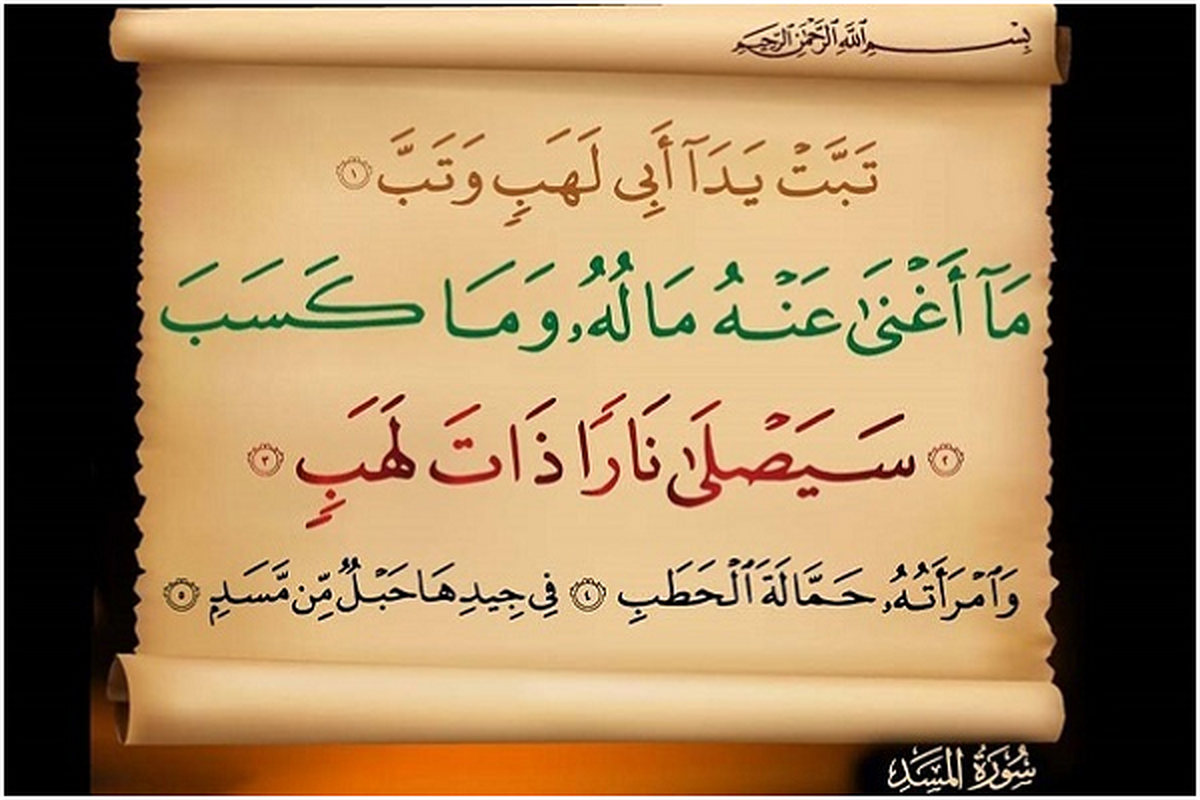 بِسْمِ ٱللَّهِ ٱلرَّحْمَٰنِ ٱلرَّحِيمِ
تَبَّتْ يَدَآ أَبِي لَهَبٍ وَتَبَّ ١
مَآ أَغْنَىٰ عَنْهُ مَالُهُۥ وَمَا كَسَبَ
٢ سَيَصْلَىٰ نَارًا ذَاتَ لَهَبٍ ٣
وَٱمْرَأَتُهُۥ حَمَّالَةَ ٱلْحَطَبِ ٤ فِي جِيدِهَا حَبْلٌ مِّن مَّسَدٍ ٥
سُورَةُ المَسَدِ